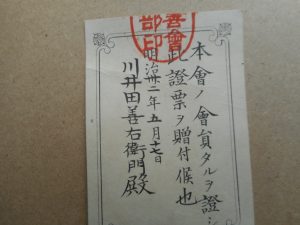 善會
部印
本會ノ會員タルヲ證シ
此證票ヲ贈付候也
明治卅二年五月十七日
川井田善右衛門殿